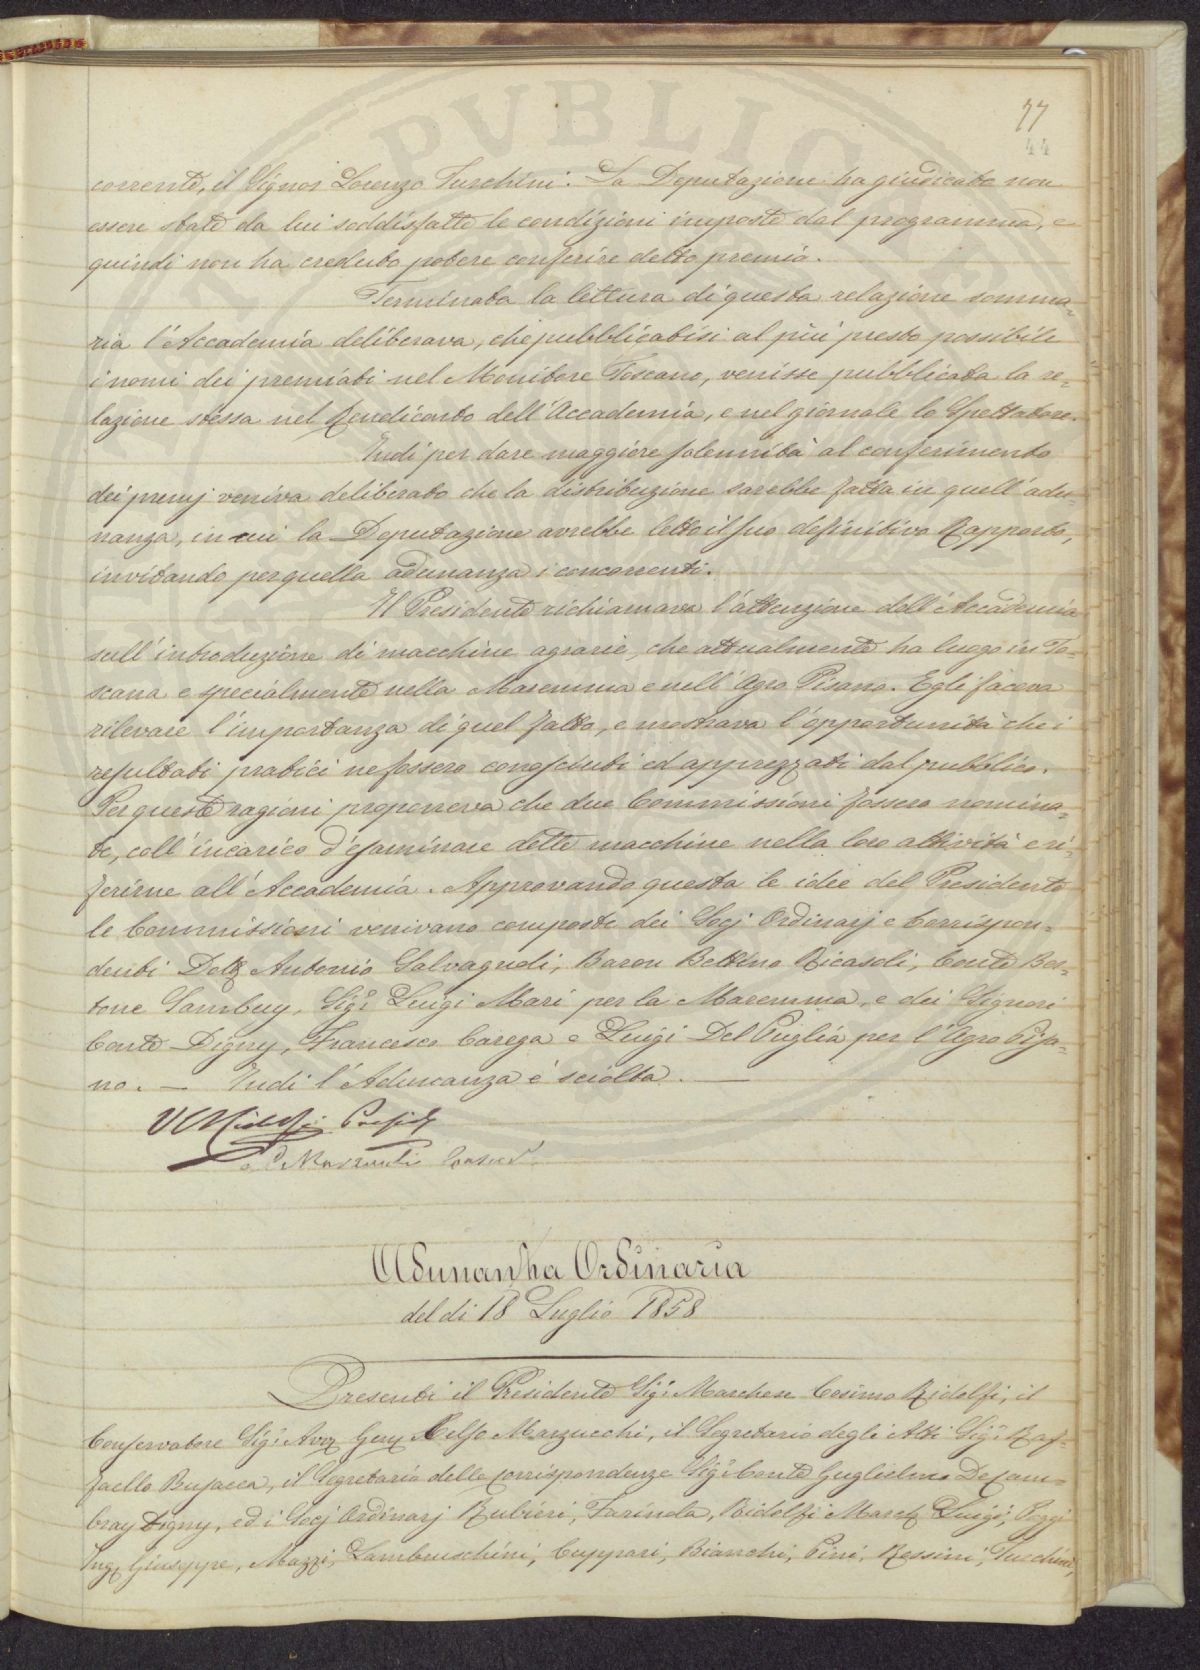 77
44
corrente, il Signor Lorenzo Turchini. La Deputazione ha giudicato non
essere state da lui soddisfatte le condizioni imposte dal programma, e
quindi non ha creduto potere conferire detto premio.
Terminata la lettura di questa relazione somma-
ria l'Accademia deliberava, che pubblicatisi al più presto possibile
i nomi dei premiati nel Monitore Toscano, venisse pubblicata la re-
lazione stessa nel Rendiconto dell'Accademia, e nel giornale lo Spettatore.
Indi per dare maggiore solennità al conferimento
dei premj veniva deliberato che la distribuzione sarebbe fatta in quell'adu-
nanza, in cui la Deputazione avrebbe letto il suo definitivo Rapporto,
invitando per quella adunanza i concorrenti.
Il Presidente richiamava l'attenzione dell'Accademia
sull'introduzione di macchine agrarie, che attualmente ha luogo in To-
scana e specialmente nella Maremma e nell'Agro Pisano. Egli faceva
rilevare l'importanza di quel fatto, e mostrava l'opportunità che i
resultati pratici ne fossero conosciuti ed apprezzati dal pubblico.
Per queste ragioni proponeva che due Commissioni fossero nomina-
te, coll'incarico d'esaminare dette macchine nella loro attività e ri-
ferirne all'Accademia. Approvando questa le idee del Presidente
le Commissioni venivano composte dei Socj Ordinarj e Corrispon-
denti Dott Antonio Salvagnoli, Baron Bettino Ricasoli, Conte Ber-
tone Sambuy, Sigr Luigi Mari per la Maremma, e dei Signori
Conte Digny, Francesco Carega e Luigi Del Puglia per l'Agro Pisa-
no. — Indi l'Adunanza è sciolta. —
Ridolfi Presid
Marzucchi
Adunanza Ordinaria
del dì 18 Luglio 1858
Presenti il Presidente Sigr Marchese Cosimo Ridolfi, il
Conservatore Sigr Avv Celso Marzucchi, il Segretario degli Atti Sigr Raf-
faello Busacca, il Segretario delle corrispondenze Sigr Conte Guglielmo DeCam-
bray Digny, ed i Socj Ordinarj Rubieri, Farinola, Ridolfi March Luigi, Poggi
Ing Giuseppe, Mazzi, Lambruschini, Cuppari, Bianchi, Pini, Rossini, Turchini,